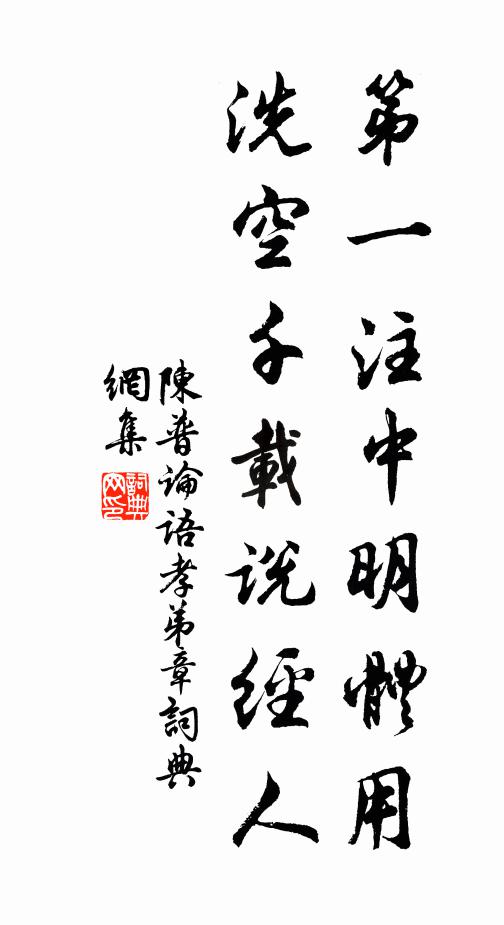 第一注中明體用
洗空千載説經人
陳普論語孝弟章詞典
網集
詞典
网印